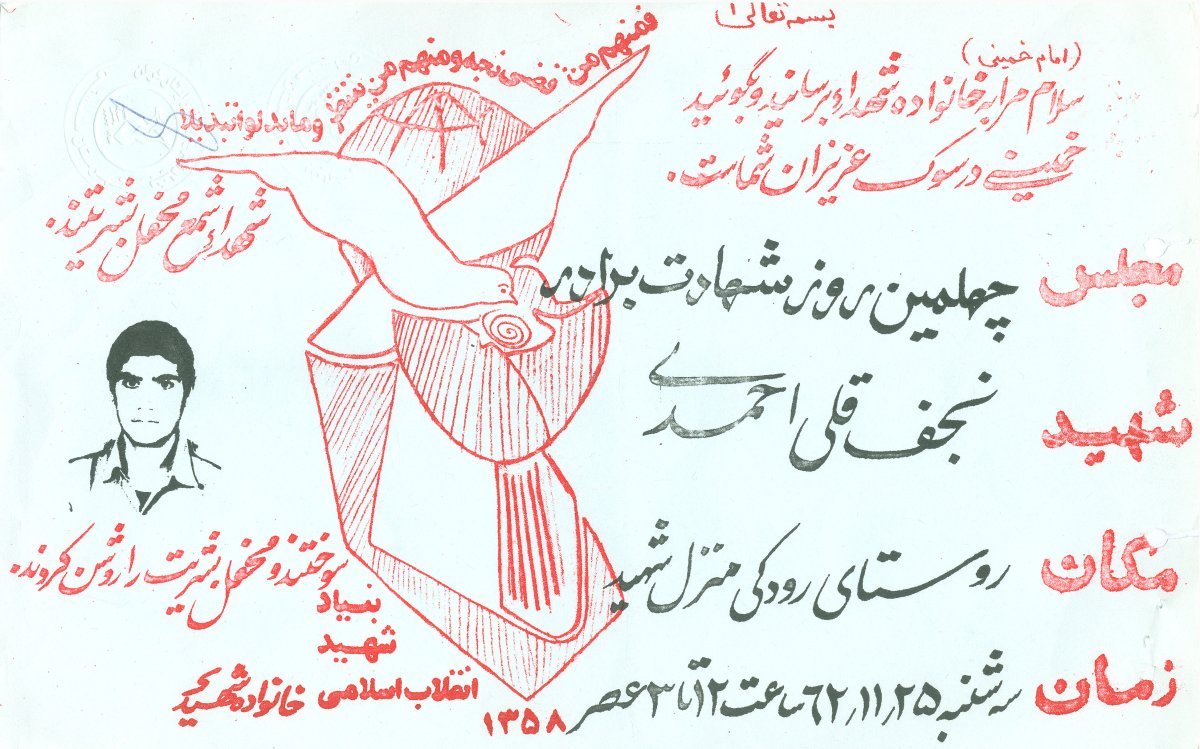 بسمه تعالی
(امام خمینی)
سلام مرا به خانواده شهداء برسانید و بگوئید
خمینی در سوک عزیزان شماست.
فمنهم من قضی نحبه و منهم من ینتظر و ما بدلوا تبدیلا
شهداء شمع محفل بشریتند.
مجلس چهلمین روز شهادت برادر
شهید نجف قلی احمدی
مکان روستای رودکی منزل شهید
زمان سه شنبه ۶۲٫۱۱٫۲۵ ساعت ۱۲ تا ۳ عصر
سوختند و محفل بشریت را روشن کردند.
بنیاد
شهید
انقلاب اسلامی
۱۳۵۸
خانواده شهید